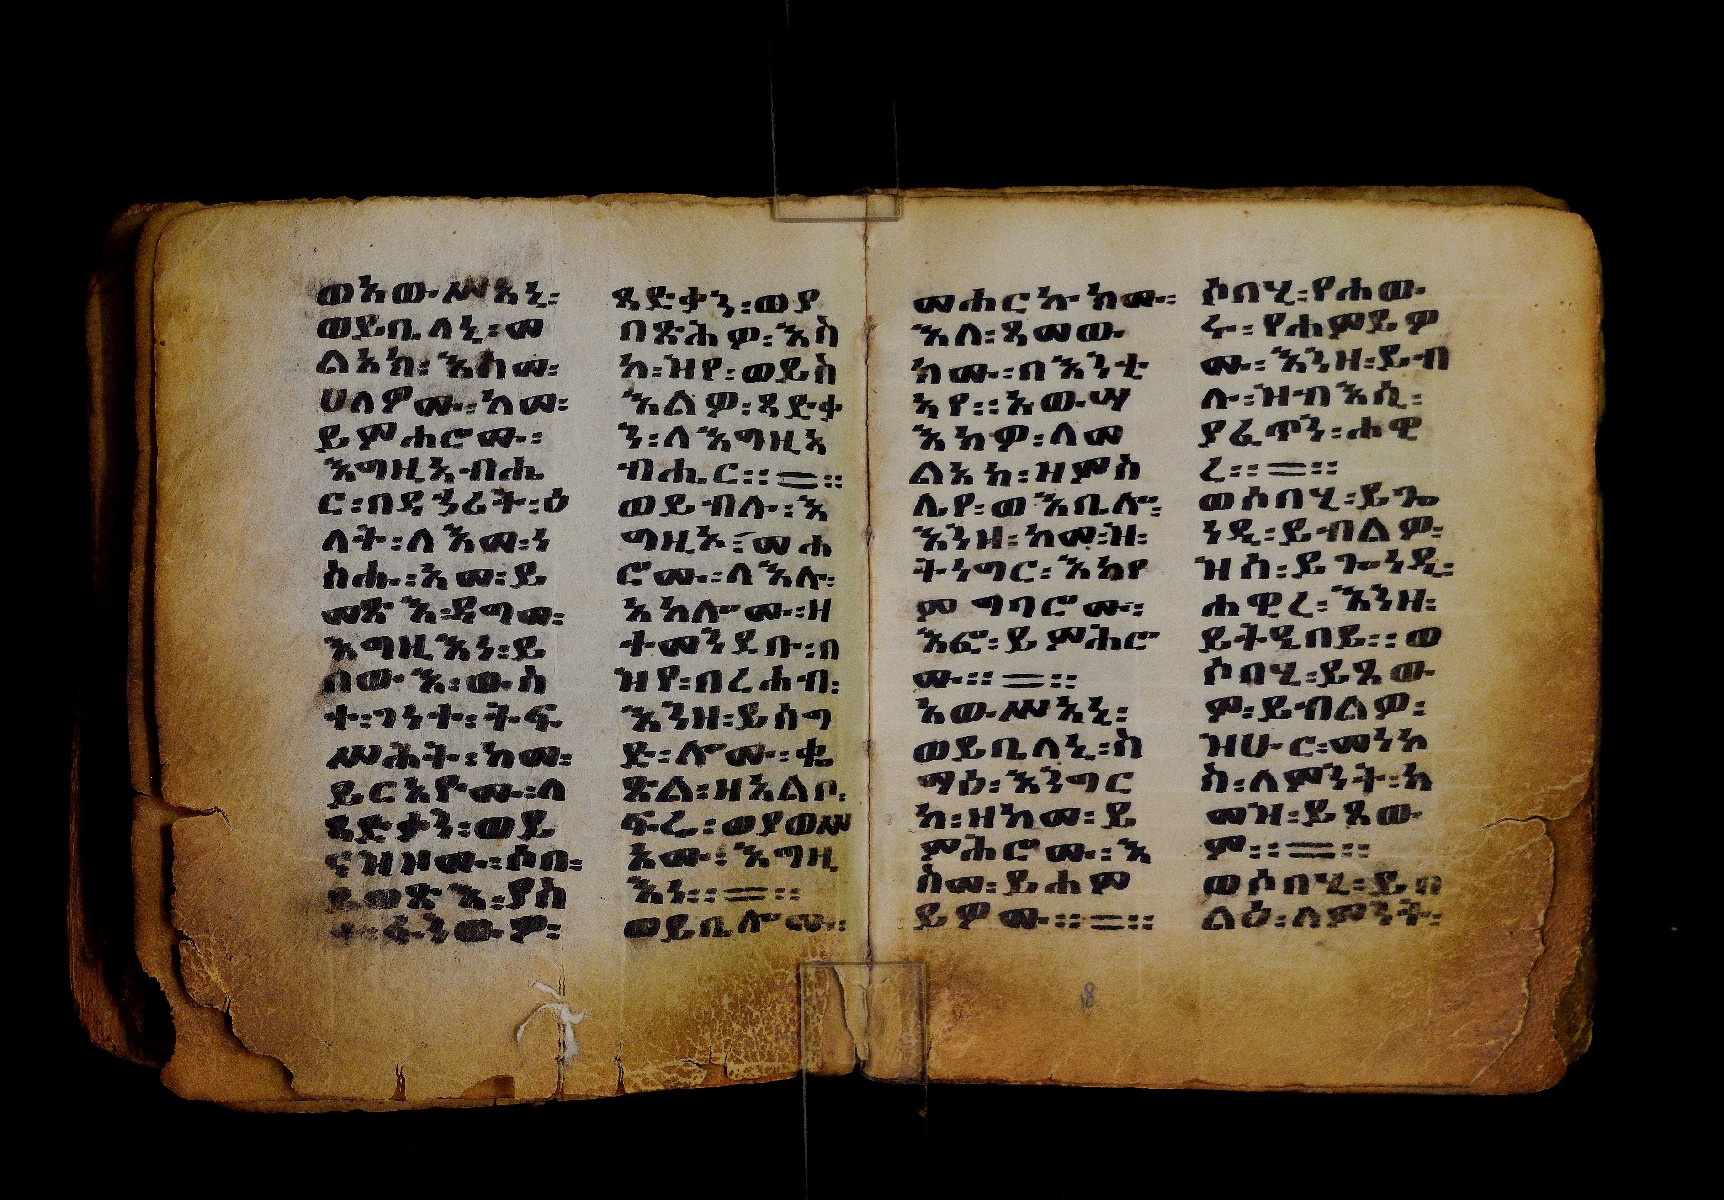 ወአውሥአኒ፡
ወይቤለኒ፡መ
ልአክ፡እስመ፡
ሀለዎሙ፡ከመ፡
ይምሐሮሙ፡
እግዚአብሔ
ር፡በደኃሪት፡ዕ
ለት፡ለእመ፡ነ
ስሐ፡አመ፡ይ
መጽእ፡ዳግመ፡
እግዚእነ፡ይ
ሰውእ፡ውስ
ተ፡ገነተ፡ትፍ
ሥሕት፡ከመ፡
ይርአዮሙ፡ለ
ጻድቃን፡ወይ
ናዝዞሙ፡ሶበ፡
ይወጽእ፡ያስ
ጻድቃን፡ወያ
በጽሕዎ፡እስ
ከ፡ዝየ፡ወይስ
እልዎ፡ጻድቃ
ን፡ለእግዚአ
ብሔር፡፡፡፡
ወይብሉ፡እ
ግዚኦ፡መሐ
ሮሙ፡ለእሉ፡
አክሎሙ፡ዘ
ተመንደቡ፡በ
ዝየ፡በረሐብ፡
እንዘ፡ይሰግ
ድ፡ሎሙ፡ቊ
ጽል፡ዘአልቦ፡
ፍሬ፡ወያወሥ
አሙ፡እግዚ
እነ፡፡፡፡
ወይቤሎሙ፡
መሐርኩክሙ፡
እለ፡ጻመው
ክሙ፡በእንቲ
አየ፡፡አውሣ
እክዎ፡ለመ
ልአክ፡ዘምስ
ሌየ፡ወእቤሎ፡
እንዘ፡ከመ፡ዝ፡
ትነግር፡እከየ
ምግባሮሙ፡
እፎ፡ይምሕሮ
ሙ፡፡፡፡
አውሥአኒ፡
ወይቤለኒ፡ስ
ማዕ፡እንግር
ከ፡ዘከመ፡ይ
ምሕሮሙ፡እ
ስመ፡ይሐም
ይዎሙ፡፡፡፡
ሶበሂ፡የሐው
ሩ፡የሐምይዎ
ሙ፡እንዘ፡ይብ
ሉ፡ዝብእሲ፡
ያፈጥን፡ሐዊ
ረ፡፡፡፡
ወሶበሂ፡ይጐ
ነዲ፡ይብልዎ፡
ዝሰ፡ይጐነዲ፡
ሐዊረ፡እንዘ፡
ይትዔበይ፡፡ወ
ሶበሂ፡ይጼው
ም፡ይብልዎ፡
ዝሁር፡መነኮ
ስ፡ለምንት፡ከ
መዝ፡ይጼው
ም፡፡፡፡
ወሶበሂ፡ይበ
ልዕ፡ለምንት፡
8